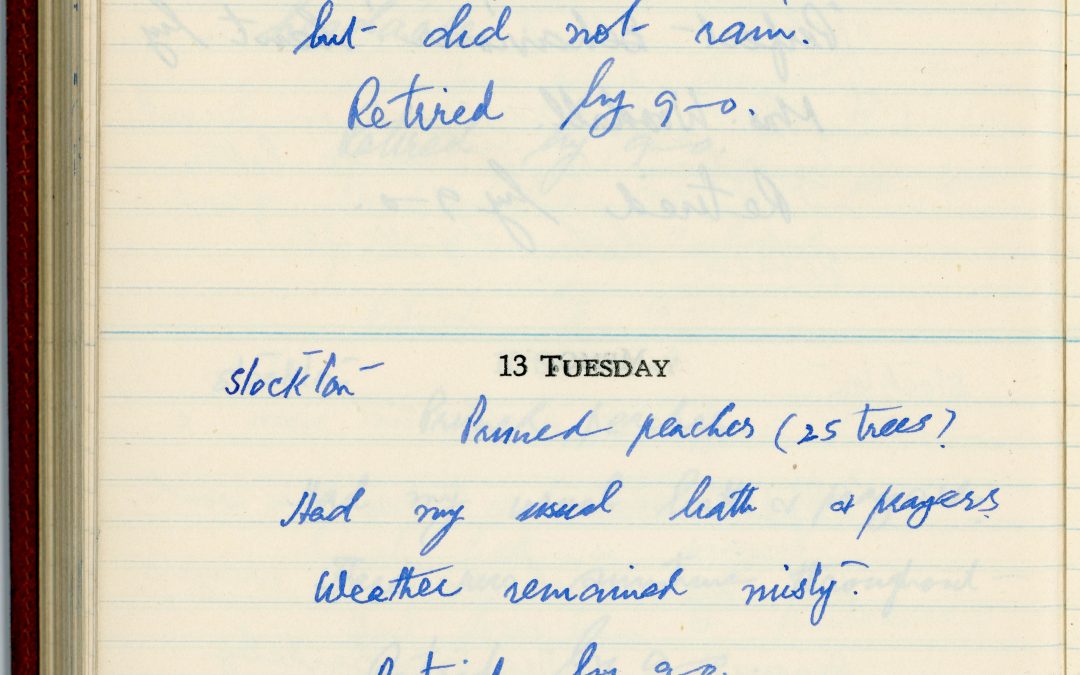 but did not rain.
Retired by 9-0.
Stockton
13 TUESDAY
Pruned peaches (25 trees)
Had my usual bath & prayers
Weather remained misty.
Retired by 9-0.